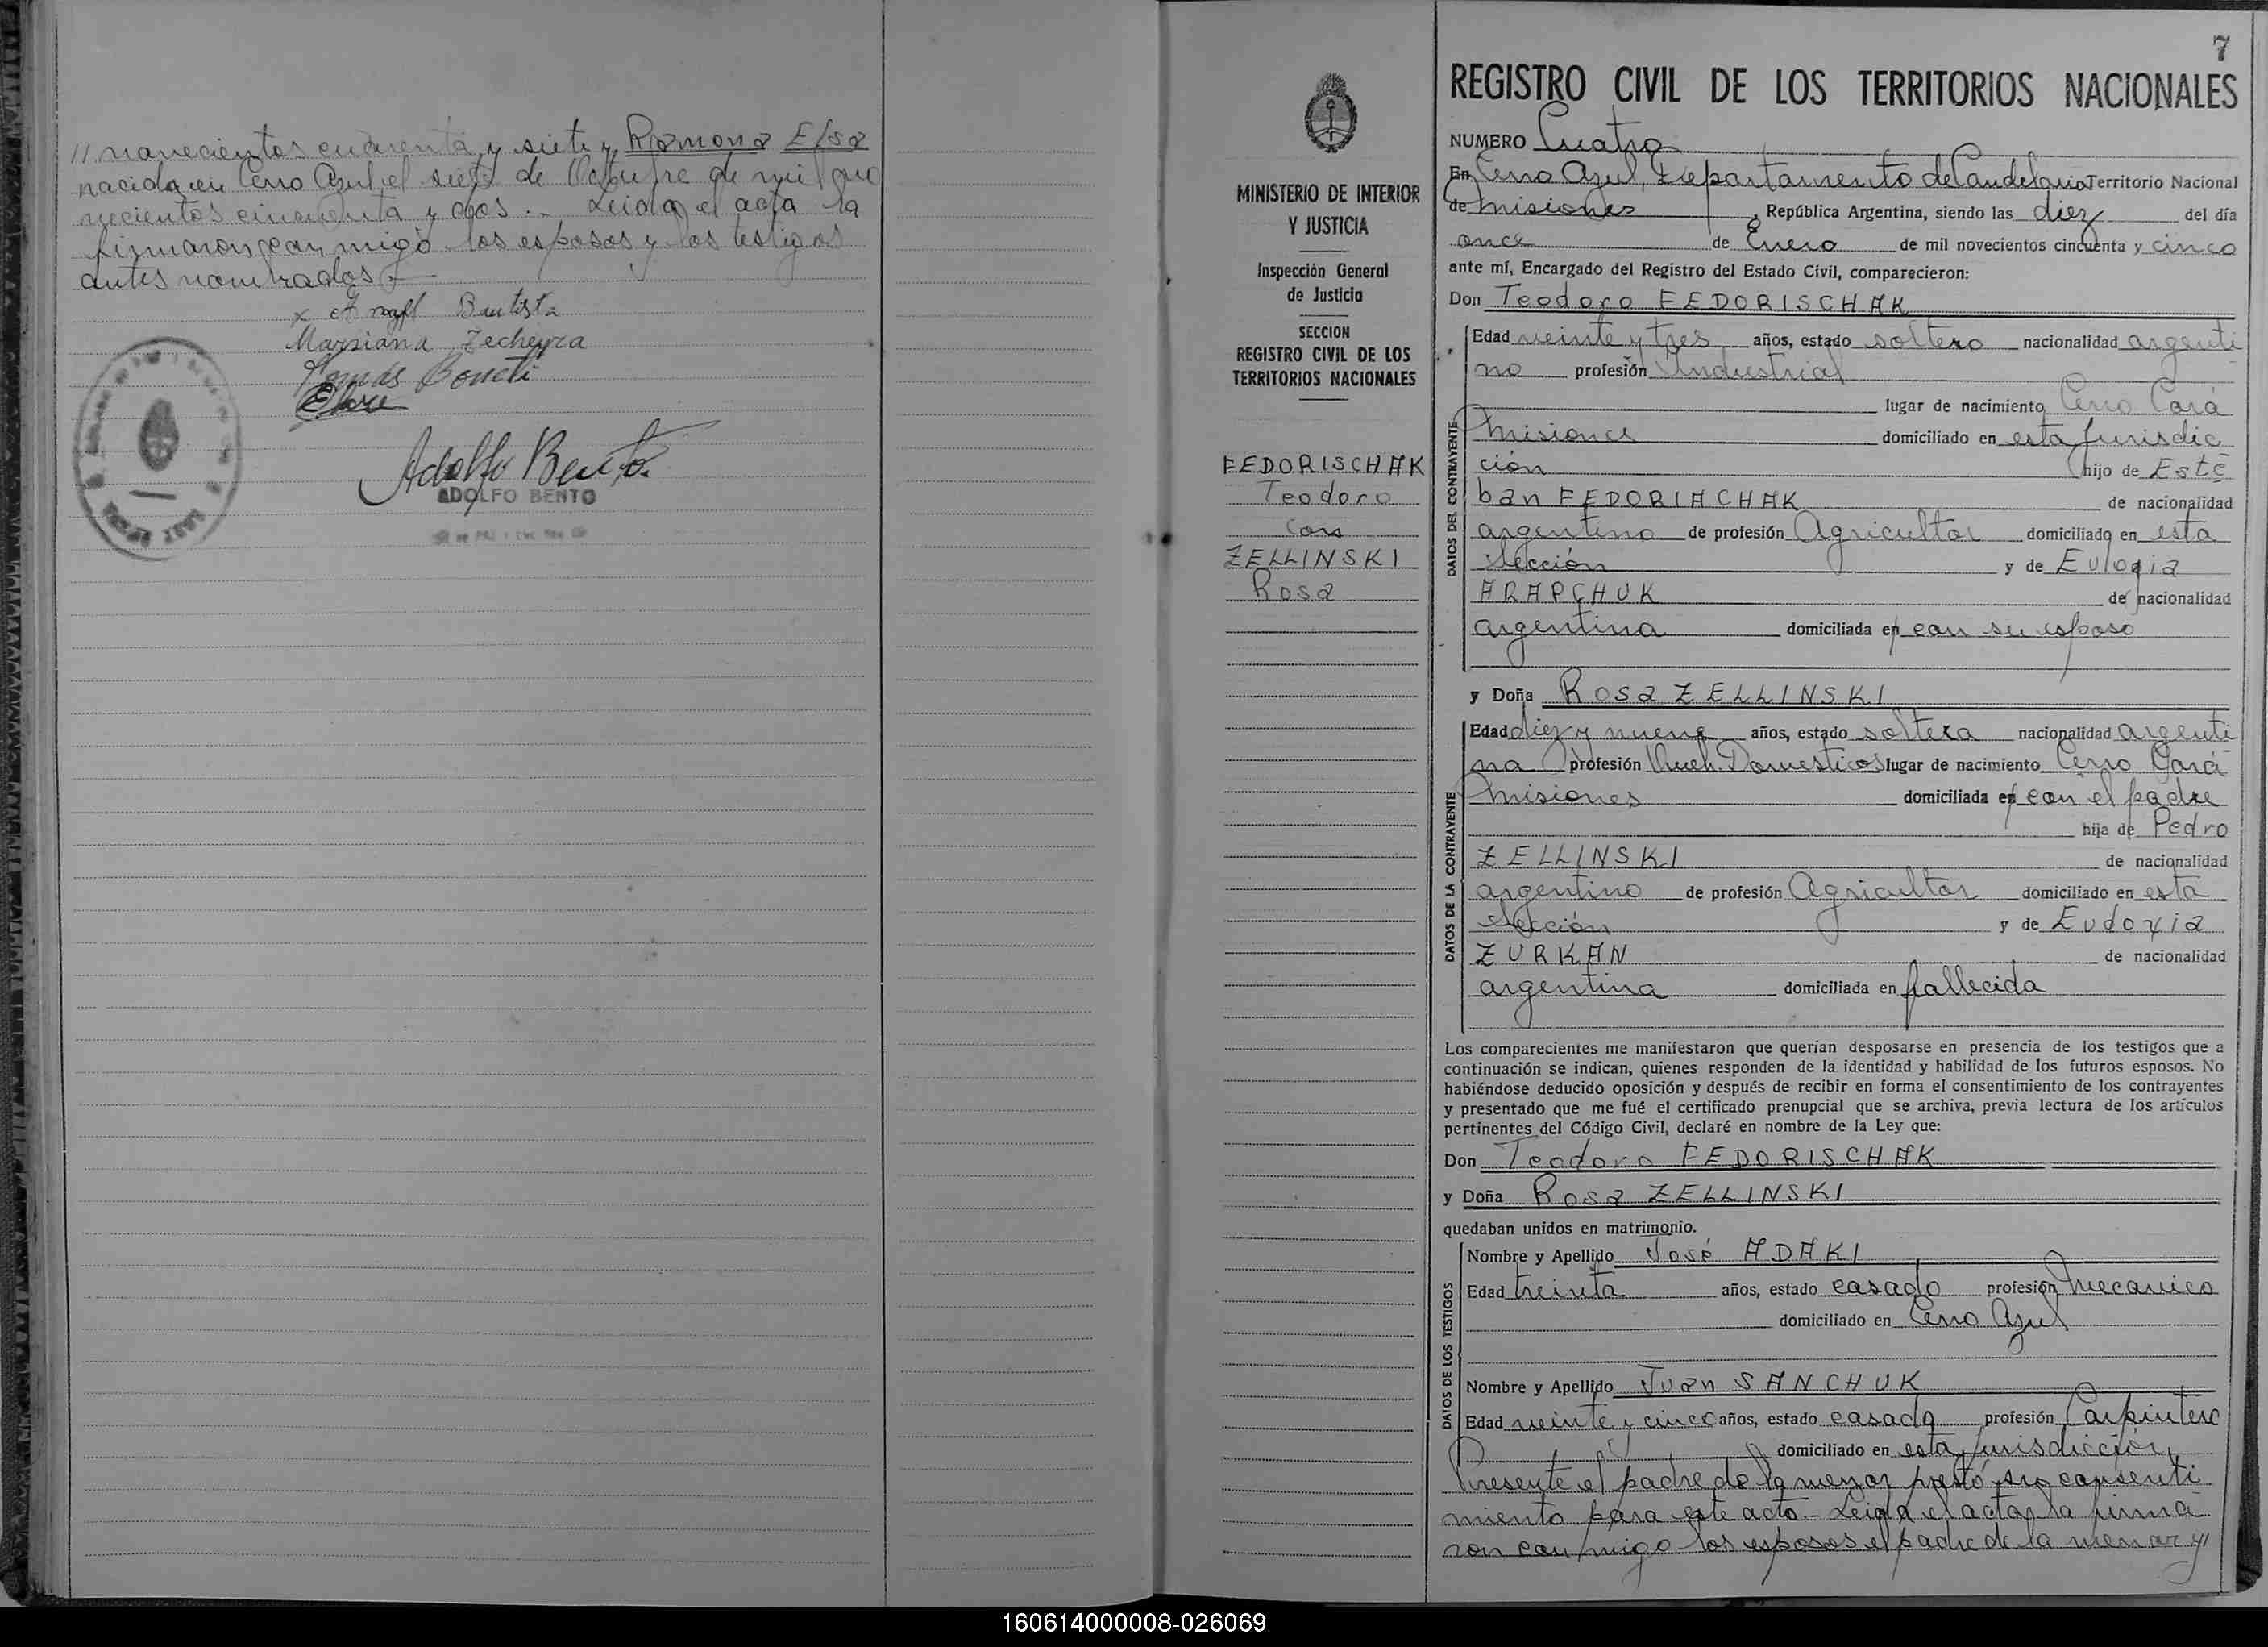 // novecientos cuarenta y siete y Ramona Elsa
nacida en Cerro Azul el siete de Octubre de mil no
vecientos cincuenta y dos.- Leida el acta la
firmaron con migo los esposos y los testigos
antes nombrados.-
Bautista
Marsiana Zecheyra
Tomás Boneti
Adolfo Bento
ADOLFO BENTO
MINISTERIO DE INTERIOR
Y JUSTICIA
Inspección General
de Justicia
SECCION
REGISTRO CIVIL DE LOS
TERRITORIOS NACIONALES
FEDORISCHAK
Teodoro
con
ZELLINSKI
Rosa
7
REGISTRO CIVIL DE LOS TERRITORIOS NACIONALES
NUMERO Cuatro
En Cerro Azul, Departamento de Candelaria Territorio Nacional
de Misiones, República Argentina, siendo las diez del día
once de Enero de mil novecientos cincuenta y cinco
ante mí, Encargado del Registro del Estado Civil, comparecieron:
Don Teodoro FEDORISCHAK
DATOS DEL CONTRAYENTE
Edad veinte y tres años, estado soltero nacionalidad argenti
no profesión Industrial
lugar de nacimiento Cerro Corá
Misiones domiciliado en esta jurisdic
ción hijo de Esté
ban FEDORIACHAK de nacionalidad
argentino de profesión Agricultor domiciliado en esta
sección y de Eulogia
ARAPCHUK de nacionalidad
argentina domiciliada en con su esposo
y Doña Rosa ZELLINSKI
DATOS DE LA CONTRAYENTE
Edad diez y nueve años, estado soltera nacionalidad argenti
na profesión Queh. Domesticos lugar de nacimiento Cerro Corá
Misiones domiciliada en con el padre
hija de Pedro
ZELLINSKI de nacionalidad
argentino de profesión Agricultor domiciliado en esta
sección y de Eudoxia
ZURKAN de nacionalidad
argentina domiciliada en fallecida
Los comparecientes me manifestaron que querían desposarse en presencia de los testigos que a
continuación se indican, quienes responden de la identidad y habilidad de los futuros esposos. No
habiéndose deducido oposición y después de recibir en forma el consentimiento de los contrayentes
y presentado que me fué el certificado prenupcial que se archiva, previa lectura de los artículos
pertinentes del Código Civil, declaré en nombre de la Ley que:
Don Teodoro FEDORISCHAK
y Doña Rosa ZELLINSKI
quedaban unidos en matrimonio.
DATOS DE LOS TESTIGOS
Nombre y Apellido José ADAKI
Edad treinta años, estado casado profesión Mecanico
domiciliado en Cerro Azul
Nombre y Apellido Juan SANCHUK
Edad veinte y cinco años, estado casado profesión Carpintero
domiciliado en esta jurisdicción
Presente el padre de la menor prestó su consenti
miento para este acto.- Leida el acta la firma
ron con migo los esposos el padre de la menor y//
160614000008-026069